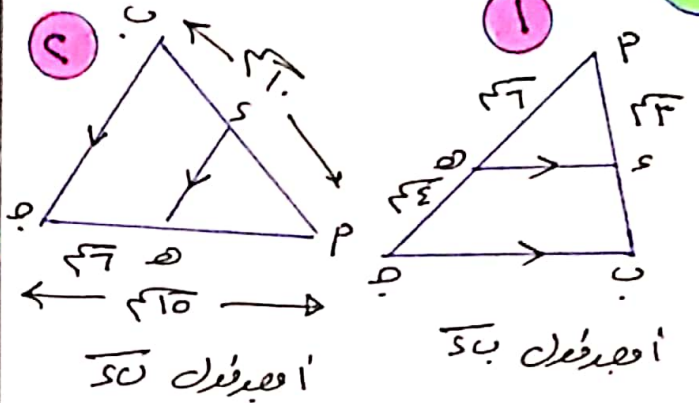 ١
أ
٦سم
٣سم
ه
د
٤سم
ج
ب
أوجد طول ب د
٢
ب
١٠سم
د
ج
أ
٦سم
ه
١٥سم
أوجد طول ب د